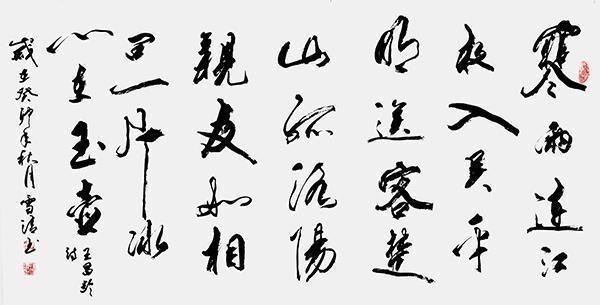 寒雨連江
夜入吴平
明送客楚
山孤洛陽
親友如相
問一片冰
心在玉壺
王昌龄
诗
歲在癸卯年秋月雪清书